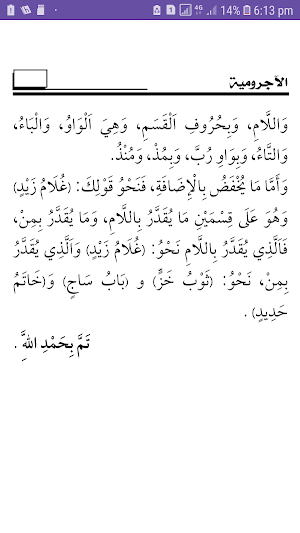 14% 6:13 pm
الآجرومية
وَاللَّامِ، وَبِحُرُوفِ اَلْقَسَمِ، وَهِيَ اَلْوَاوُ، وَالْبَاءُ،
وَالتَّاءُ، وَبِوَاوِ رُبَّ، وَبِمُذْ، وَمُنْذُ.
وَأَمَّا مَا يُخْفَضُ بِالْإِضَافَةِ، فَنَحْوُ قَوْلِكَ: (غُلَامُ زَيْدٍ)
وَهُوَ عَلَى قِسْمَيْنِ مَا يُقَدَّرُ بِاللَّامِ، وَمَا يُقَدَّرُ بِمِنْ،
فَاَلَّذِي يُقَدَّرُ بِاللَّامِ نَحْوُ: (غُلَامُ زَيْدٍ) وَاَلَّذِي يُقَدَّرُ
بِمِنْ، نَحْوُ: (ثَوْبُ خَزٍّ) و (بَابُ سَاجٍ) وَ(خَاتَمُ
حَدِيدٍ) .
تَمَّ بِحَمْدِ اللَّهِ .